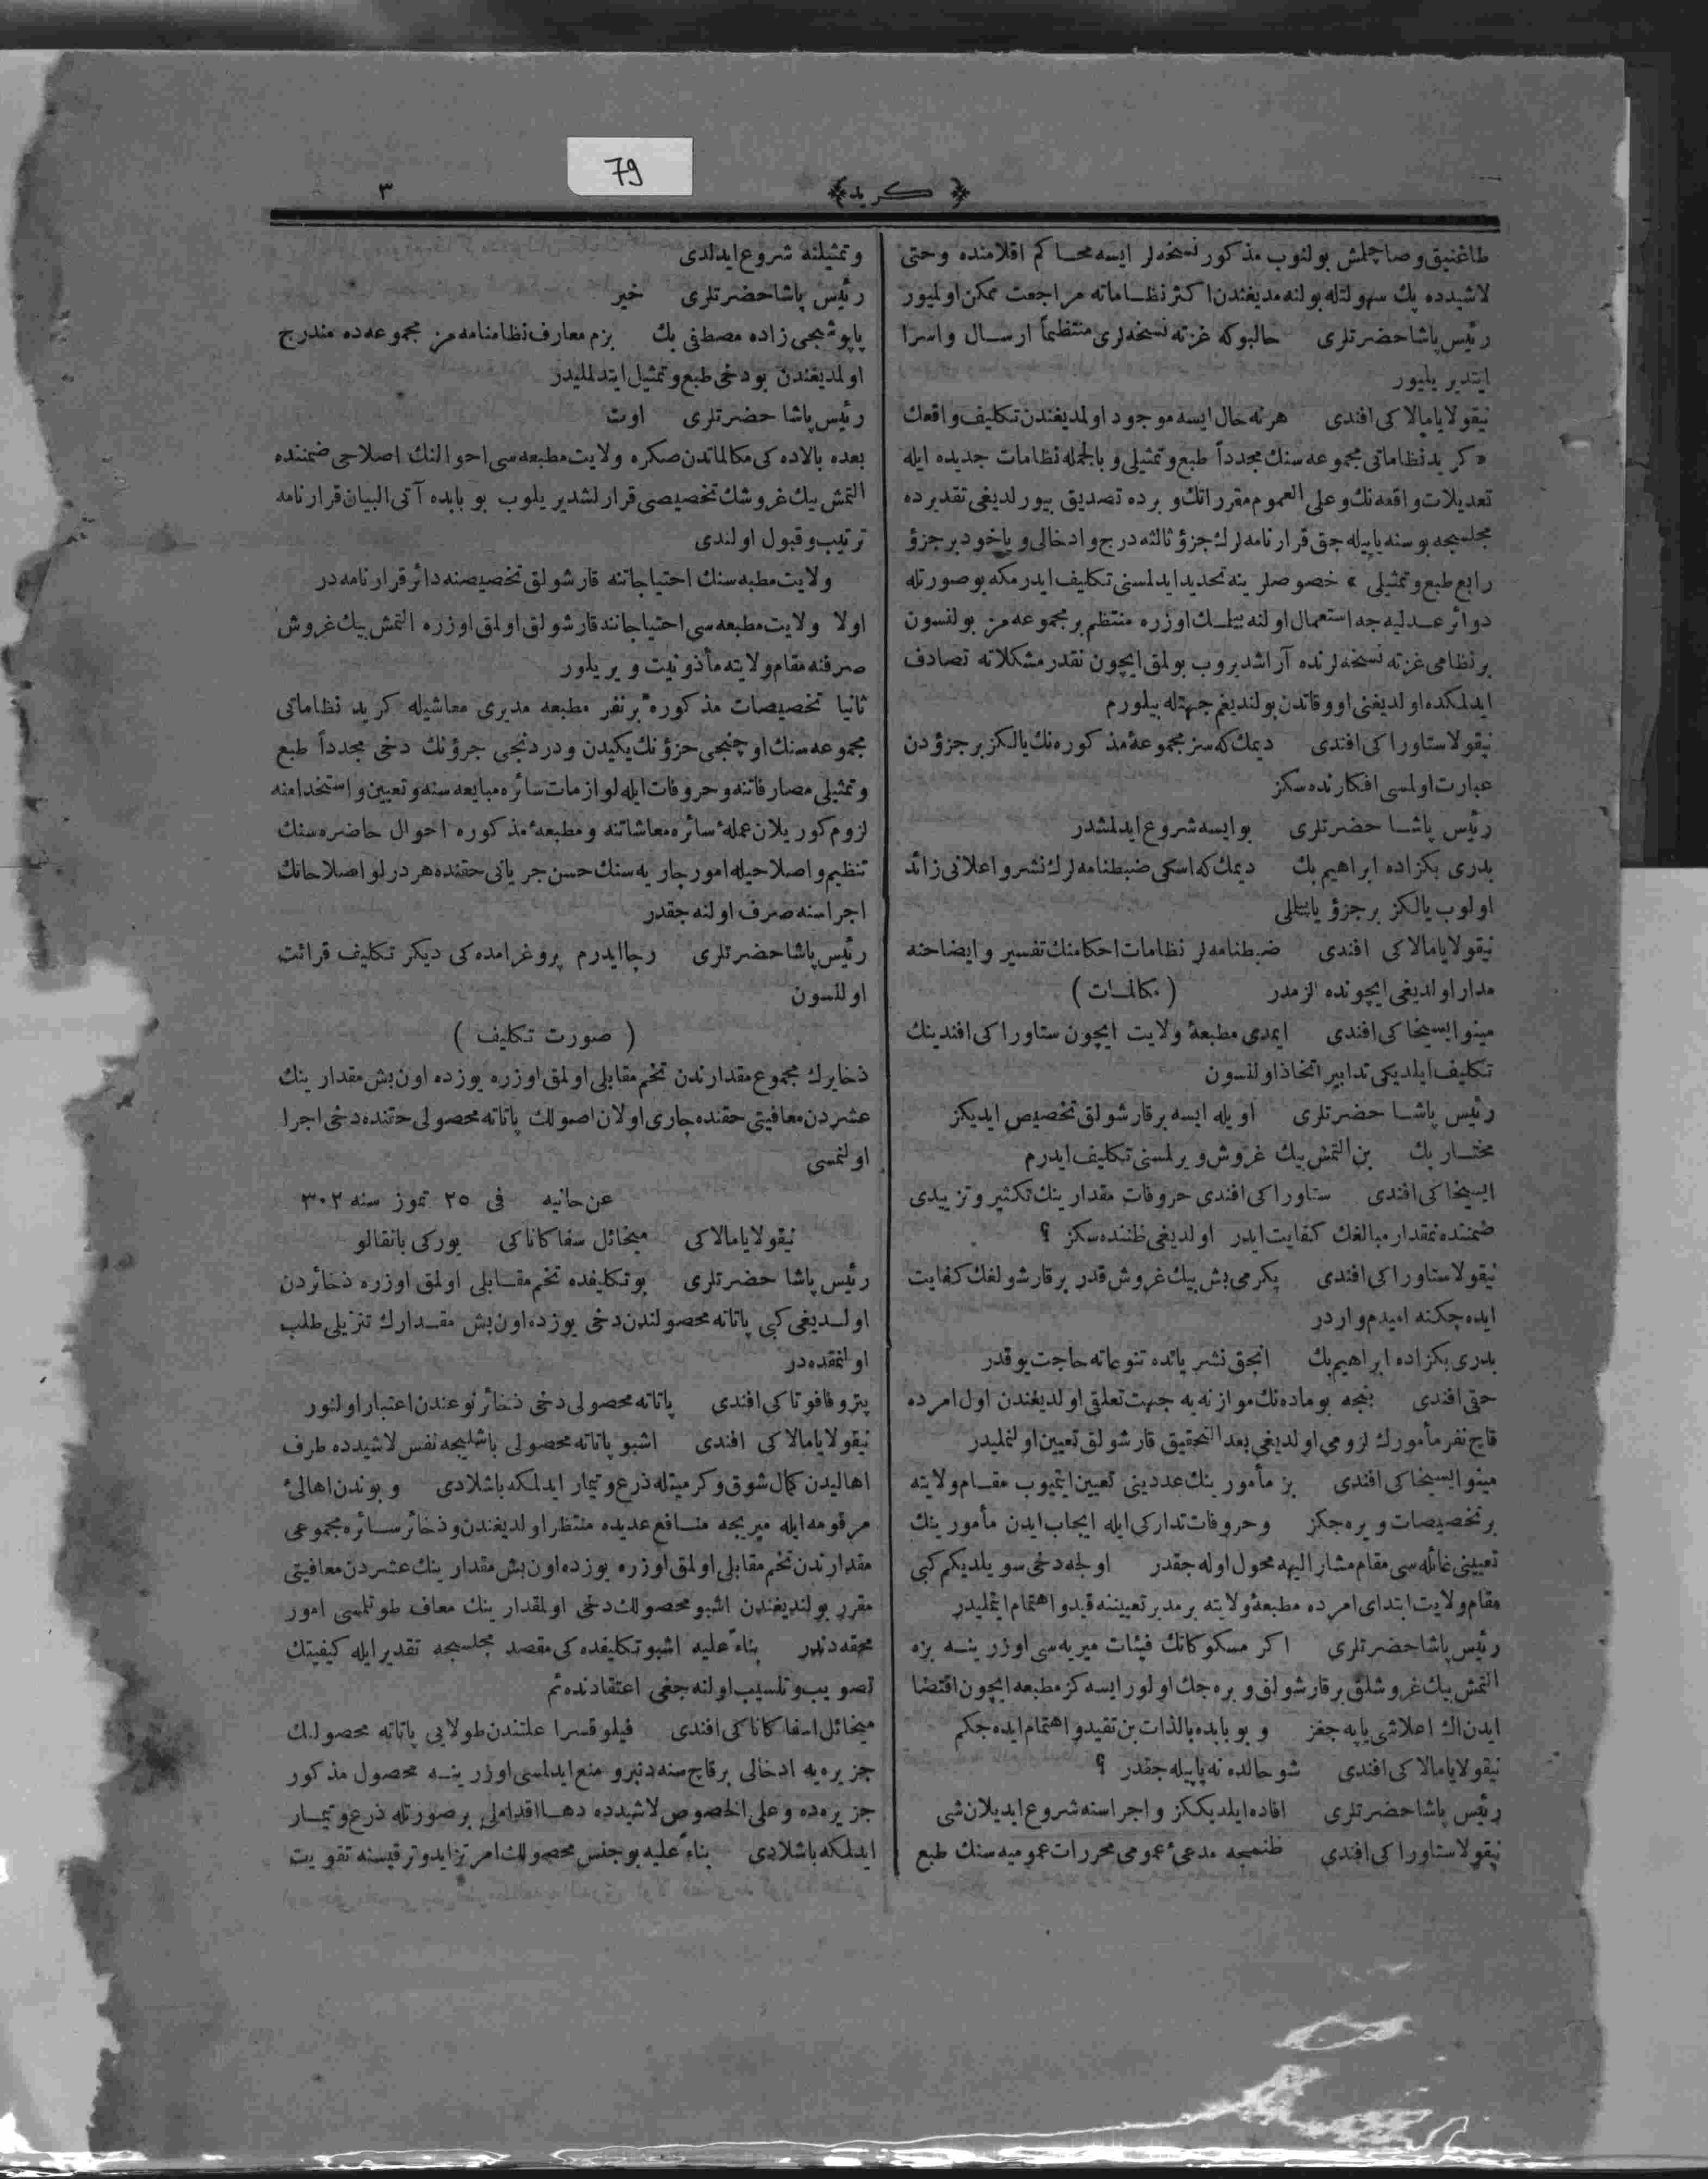 79
﴿ كريد ﴾
٣
طاغنيق وصاچلمش بولنوب مذكور نسخه‌لر ايسه محاكم اقلامنده وحتى
لاشيدده پك سهولتله بولنه مديغندن اكثر نظاماته مراجعت ممكن اولميور
رئيس پاشا حضرتلرى حالبوكه غزته نسخه‌لرى منتظماً ارسال واسرا
ايتدير يليور
نيقولا يامالاكى افندى هر نه حال ايسه موجود اولمديغندن تكليف واقعك
«كريد نظاماتى مجموعه سنك مجدداً طبع وتمثيلى وبالجمله نظامات جديده ايله
تعديلات واقعه نك وعلى العموم مقرراتك وبرده تصديق بيورلديغى تقديرده
مجلسجه بوسنه ياپيله جق قرارنامه لرك جزؤ ثالثه درج وادخالى وياخود بر جزؤ
رابع طبع وتمثيلى» خصوصلرينه تحديد ايدلمسنى تكليف ايدرمكه بوصورتله
دوائر عدليه جه استعمال اولنه بيلمك اوزره منتظم بر مجموعه مز بولنسون
بر نظامى غزته نسخه‌لرنده آراشديروب بولمق ايچون نقدر مشكلاته تصادف
ايدلمكده اولديغنى اووقاتدن بولنديغم جهتله بيلورم
نيقولا ستاوراكى افندى ديمك كه سز مجموعهٔ مذكوره نك يالكز بر جزؤدن
عبارت اولمسى افكارنده سكز
رئيس پاشا حضرتلرى بو ايسه شروع ايدلمشدر
بدرى بكزاده ابراهيم بك ديمك كه اسكى ضبطنامه لرك نشر واعلانى زائد
اولوب يالكز بر جزؤ ياپيلمى
نيقولا يامالاكى افندى ضبطنامه لر نظامات احكامنك تفسير وايضاحنه
مدار اولديغى ايچون ده الزمدر (مكالمات)
مينو ايسيخاكى افندى ايمدى مطبعهٔ ولايت ايچون ستاوراكى افندينك
تكليف ايلديكى تدابير اتخاذ اولنسون
رئيس پاشا حضرتلرى اويله ايسه بر قارشولق تخصيص ايديكز
مختار بك بن التمش بيك غروش ويرلمسنى تكليف ايدرم
ايسيخاكى افندى ستاوراكى افندى حروفات مقدارينك تكثير وتزييدى
ضمننده نه مقدار مبالغك كفايت ايدر اولديغى ظننده سكز ؟
نيقولا ستاوراكى افندى يكرمى بش بيك غروش قدر بر قارشولغك كفايت
ايده جكنه اميدم واردر
بدرى بكزاده ابراهيم بك انجق نشرياتده تنوعاته حاجت يوقدر
حقى افندى بنجه بو ماده نك موازنه يه جهت تعلقى اولديغندن اول امرده
قاچ نفر مأمورك لزومى اولديغى بعد التحقيق قارشولق تعيين اولنمليدر
مينو ايسيخاكى افندى بز مأمورينك عددينى تعيين ايتميوب مقام ولايته
بر تخصيصات ويره جكز وحروفات تداركى ايله ايجاب ايدن مأمورينك
تعيينى غائله سى مقام مشار اليهه محول اوله جقدر اولجه دخى سويلديكم كبى
مقام ولايت ابتداى امرده مطبعهٔ ولايته بر مدير تعييننه قيد واهتمام ايتمليدر
رئيس پاشا حضرتلرى اكر مسكوكاتك فيئات ميريه سى اوزرينه بزه
التمش بيك غروشلق بر قارشولق ويره جك اولور ايسه كز مطبعه ايچون اقتضا
ايدن اك اعلاشى ياپه جغز وبو بابده بالذات بن تقيد واهتمام ايده جكم
نيقولا يامالاكى افندى شو حالده نه ياپيله جقدر ؟
رئيس پاشا حضرتلرى افاده ايلديككز واجراسنه شروع ايديلان شى
نيقولا ستاوراكى افندى ظنمجه مدعىٔ عمومى محررات عموميه سنك طبع
وتمثيلنه شروع ايدلدى
رئيس پاشا حضرتلرى خير
پاپوشجى زاده مصطفى بك بزم معارف نظامنامه مز مجموعه ده مندرج
اولمديغندن بو دخى طبع وتمثيل ايتدلمليدر
رئيس پاشا حضرتلرى اوت
بعده بالاده كى مكالماتدن صكره ولايت مطبعه سى احوالنك اصلاحى ضمننده
التمش بيك غروشك تخصيصى قرارلشديريلوب بو بابده آتى البيان قرارنامه
ترتيب وقبول اولندى
ولايت مطبعه سنك احتياجاتنه قارشولق تخصيصنه دائر قرارنامه در
اولا ولايت مطبعه سى احتياجاتنه قارشولق اولمق اوزره التمش بيك غروش
صرفنه مقام ولايته مأذونيت ويريلور
ثانيا تخصيصات مذكوره بر نفر مطبعه مديرى معاشيله كريد نظاماتى
مجموعه سنك اوچنجى جزؤنك يكيدن ودردنجى جزؤنك دخى مجدداً طبع
وتمثيلى مصارفاتنه وحروفات ايله لوازمات سائره مبايعه سنه وتعيين واستخدامنه
لزوم كوريلان عملهٔ سائره معاشاتنه ومطبعهٔ مذكوره احوال حاضره سنك
تنظيم واصلاحيله امور جاريه سنك حسن جريانى حقنده هر درلو اصلاحاتك
اجراسنه صرف اولنه جقدر
رئيس پاشا حضرتلرى رجا ايدرم پروغرامده كى ديكر تكليف قرائت
اولنسون
(صورت تكليف)
ذخايرك مجموع مقدارندن تخم مقابلى اولمق اوزره يوزده اون بش مقدارينك
عشردن معافيتى حقنده جارى اولان اصولك پاتاته محصولى حقنده دخى اجرا
اولنمسى
عن حانيه فى ٢٥ تموز سنه ٣٠٢
نيقولا يامالاكى ميخائل سفاكاناكى يوركى بانقالو
رئيس پاشا حضرتلرى بو تكليفده تخم مقابلى اولمق اوزره ذخائردن
اولديغى كبى پاتاته محصولندن دخى يوزده اون بش مقدارك تنزيلى طلب
اولنمقده در
پترو فافوتاكى افندى پاتاته محصولى دخى ذخائر نوعندن اعتبار اولنور
نيقولا يامالاكى افندى اشبو پاتاته محصولى باشليجه نفس لاشيدده طرف
اهاليدن كمال شوق وكرميتله ذرع وتيمار ايدلمكه باشلادى وبوندن اهالىٔ
مرقومه ايله ميريجه منافع عديده منتظر اولديغندن وذخائر سائره مجموعى
مقدارندن تخم مقابلى اولمق اوزره يوزده اون بش مقدارينك عشردن معافيتى
مقرر بولنديغندن اشبو محصولك دخى اولمقدارينك معاف طوتلمسى امور
محقه دندر بناءً عليه اشبو تكليفده كى مقصد مجلسجه تقدير ايله كيفيتك
تصويب وتنسيب اولنه جغى اعتقادنده يم
ميخائل اسفاكاناكى افندى فيلوقسرا علتندن طولايى پاتاته محصولنك
جزيره يه ادخالى بر قاچ سنه دنبرو منع ايدلمسى اوزرينه محصول مذكور
جزيره ده وعلى الخصوص لاشيدده دها اقداملى بر صورتله ذرع وتيمار
ايدلمكه باشلادى بناءً عليه بو جنس محصولك امر تزايد وترقيسنه تقويت